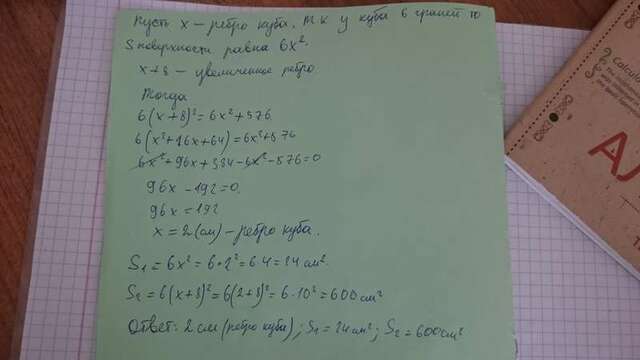 Пусть x – ребро куба. т к у куба 6 граней то
S поверхности равна 6x².
x+8 – увеличенное ребро
Тогда
6(x+8)²=6x²+576
6(x²+16x+64)=6x²+576
6x²+96x+384-6x²-576=0
96x-192=0
96x=192
x=2(см) – ребро куба.
S₁=6x²=6·2²=6·4=24см².
S₂=6(x+8)²=6(2+8)²=6·10²=600см²
Ответ: 2см(ребро куба); S₁=24см²; S₂=600см²
Calcul
AJ